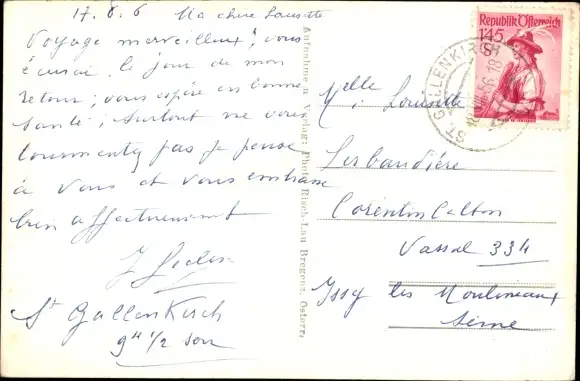 17. 8. 6 Ma chère Lousette
Voyage merveilleux, vous
écrirai le jour de mon
retour; vous espère en bonne
santé; surtout ne vous
tourmentez pas je pense
à vous et vous embrasse
bien affectueusement
St Gallenkirch
9H 1/2 soir
Aufnahme u. Verlag: Photo Risch-Lau Bregenz, Österr.
Republik Österreich
1.45
S
ST. GALLENKIRCH
Melle Lousette
Lesbaudière
Corentin Celton
Vassal 334
Issy les Moulineaux
Seine